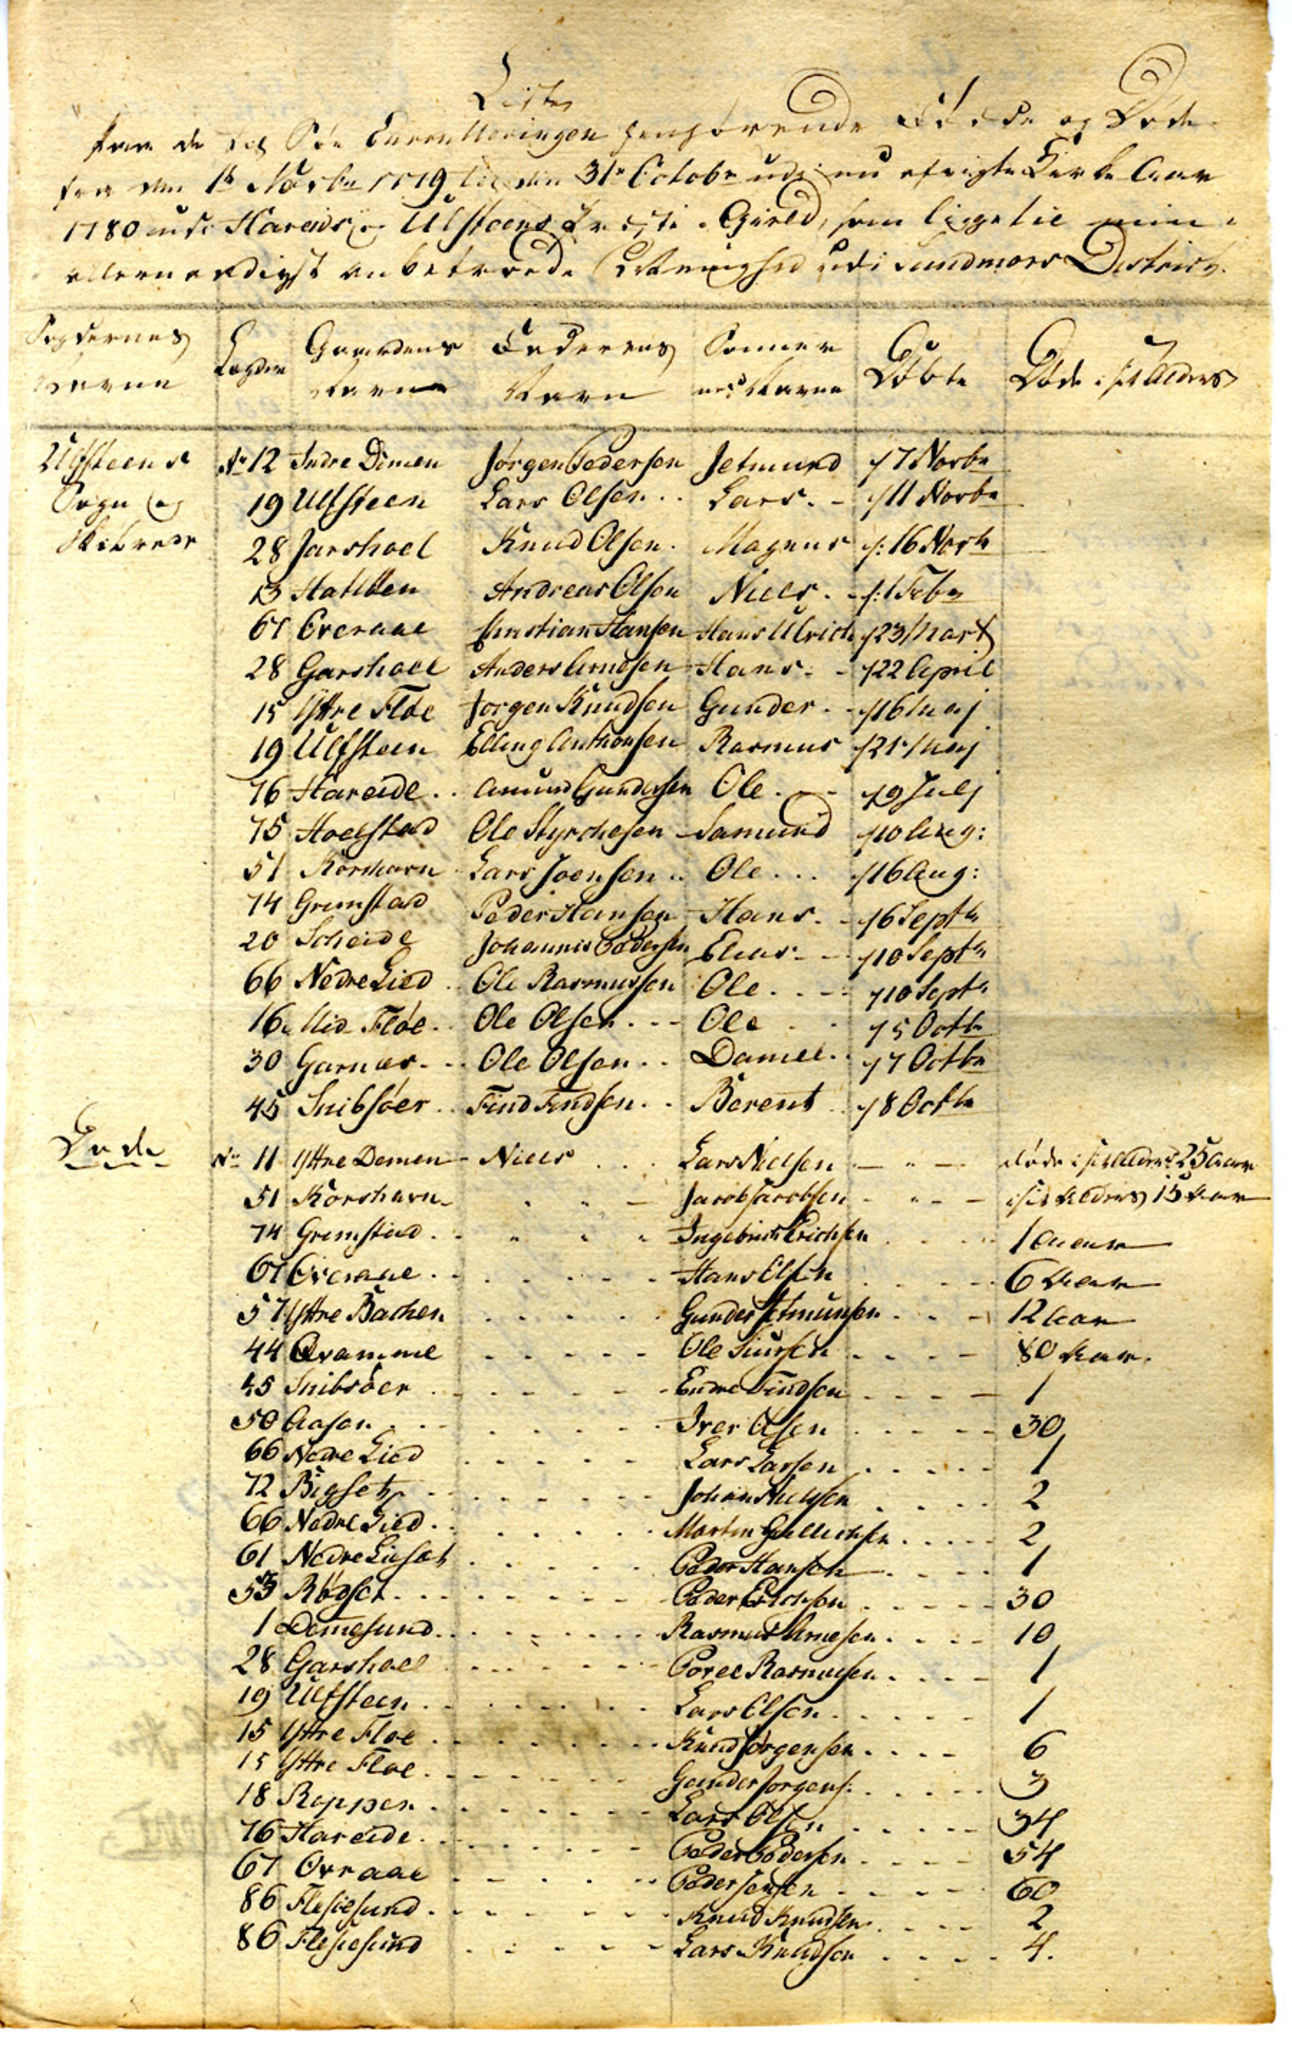 Liste
for den 1te Novbr 1779 til den 31te Octobr udi
1780 udi Hareids og Ulfsteens Præste Gield, som ligge til min
allernaadigst anbetroede udi Sundmørs District.
Sognernes Navne | Lægder | Gaardens Navne | Faderens Navn | Sønnernes Navne | Døbte | Døde i sit Alders
Ulfsteens No 12 Indre Dimen Jørgen Pedersen Jetmund 7 Novbr
Sogn og 19 Ulfsteen Lars Olsen Lars 11 Novbr
Skibrede 28 Jarshoel Knud Olsen Magnus 16 Novbr
13 Hatløen Andreas Olsen Niels 1 Febr
67 Overaae Christian Hansen Hans Ulrich 23 Mart
28 Garshoel Anders Arnesen Hans 22 April
15 Yttre Fløe Jørgen Knudsen Gunder 16 Maj
19 Ulfsteen Elling Anthonsen Rasmus 21 Maj
76 Hareide Amund Gundersen Ole 9 Julj
75 Hoelstad Ole Styrchesen Samund 10 Aug:
51 Korshavn Lars Joensen Ole 16 Aug:
74 Grimstad Peder Hansen Hans 6 Septbr
20 Scheide Johannis Pedersen Elias 10 Septbr
66 Nedre Lied Ole Rasmussen Ole 10 Septbr
16 Mid Fløe Ole Olsen Ole 5 Octbr
30 Garnæs Ole Olsen Daniel 7 Octbr
45 Snibsøer Find Findsen Berent 8 Octbr
Døde No 11 Yttre Demen Niels Lars Nielsen døde i sit Alders 25 Aar
51 Korshavn Jacob Jacobsen i sit Alders 15 Aar
74 Grimstad Ingebrict Erichsen 1 Aar
67 Overaae Hans Olsen 6 Aar
57 Yttre Bachen Gunder Jetmunsen 12 Aar
44 Qvamme Ole Siursen 80 Aar
45 Snibsøer Endre Findsen 1
50 Aasen Iver Olsen 30
66 Nedre Lied Lars Larsen 1
72 Bigset Johan Nielsen 2
66 Nedre Lied Morten Gullichsen 2
61 Nedre Liaset Peder Hansen 1
53 Røyset Peder Erichsen 30
1 Dimesund Rasmus Arnesen 10
28 Garshoel Povel Rasmussen 1
19 Ulfsteen Lars Olsen 1
15 Yttre Fløe Knud Jørgensen 6
15 Yttre Fløe Gunder Jørgens: 3
18 Roppen Lars Olsen 34
76 Hareide Peder Pedersen 54
67 Ovraae Peder Jensen 60
86 Flesiesund Knud Knudsen 2
86 Flesiesund Lars Knudsen 4.